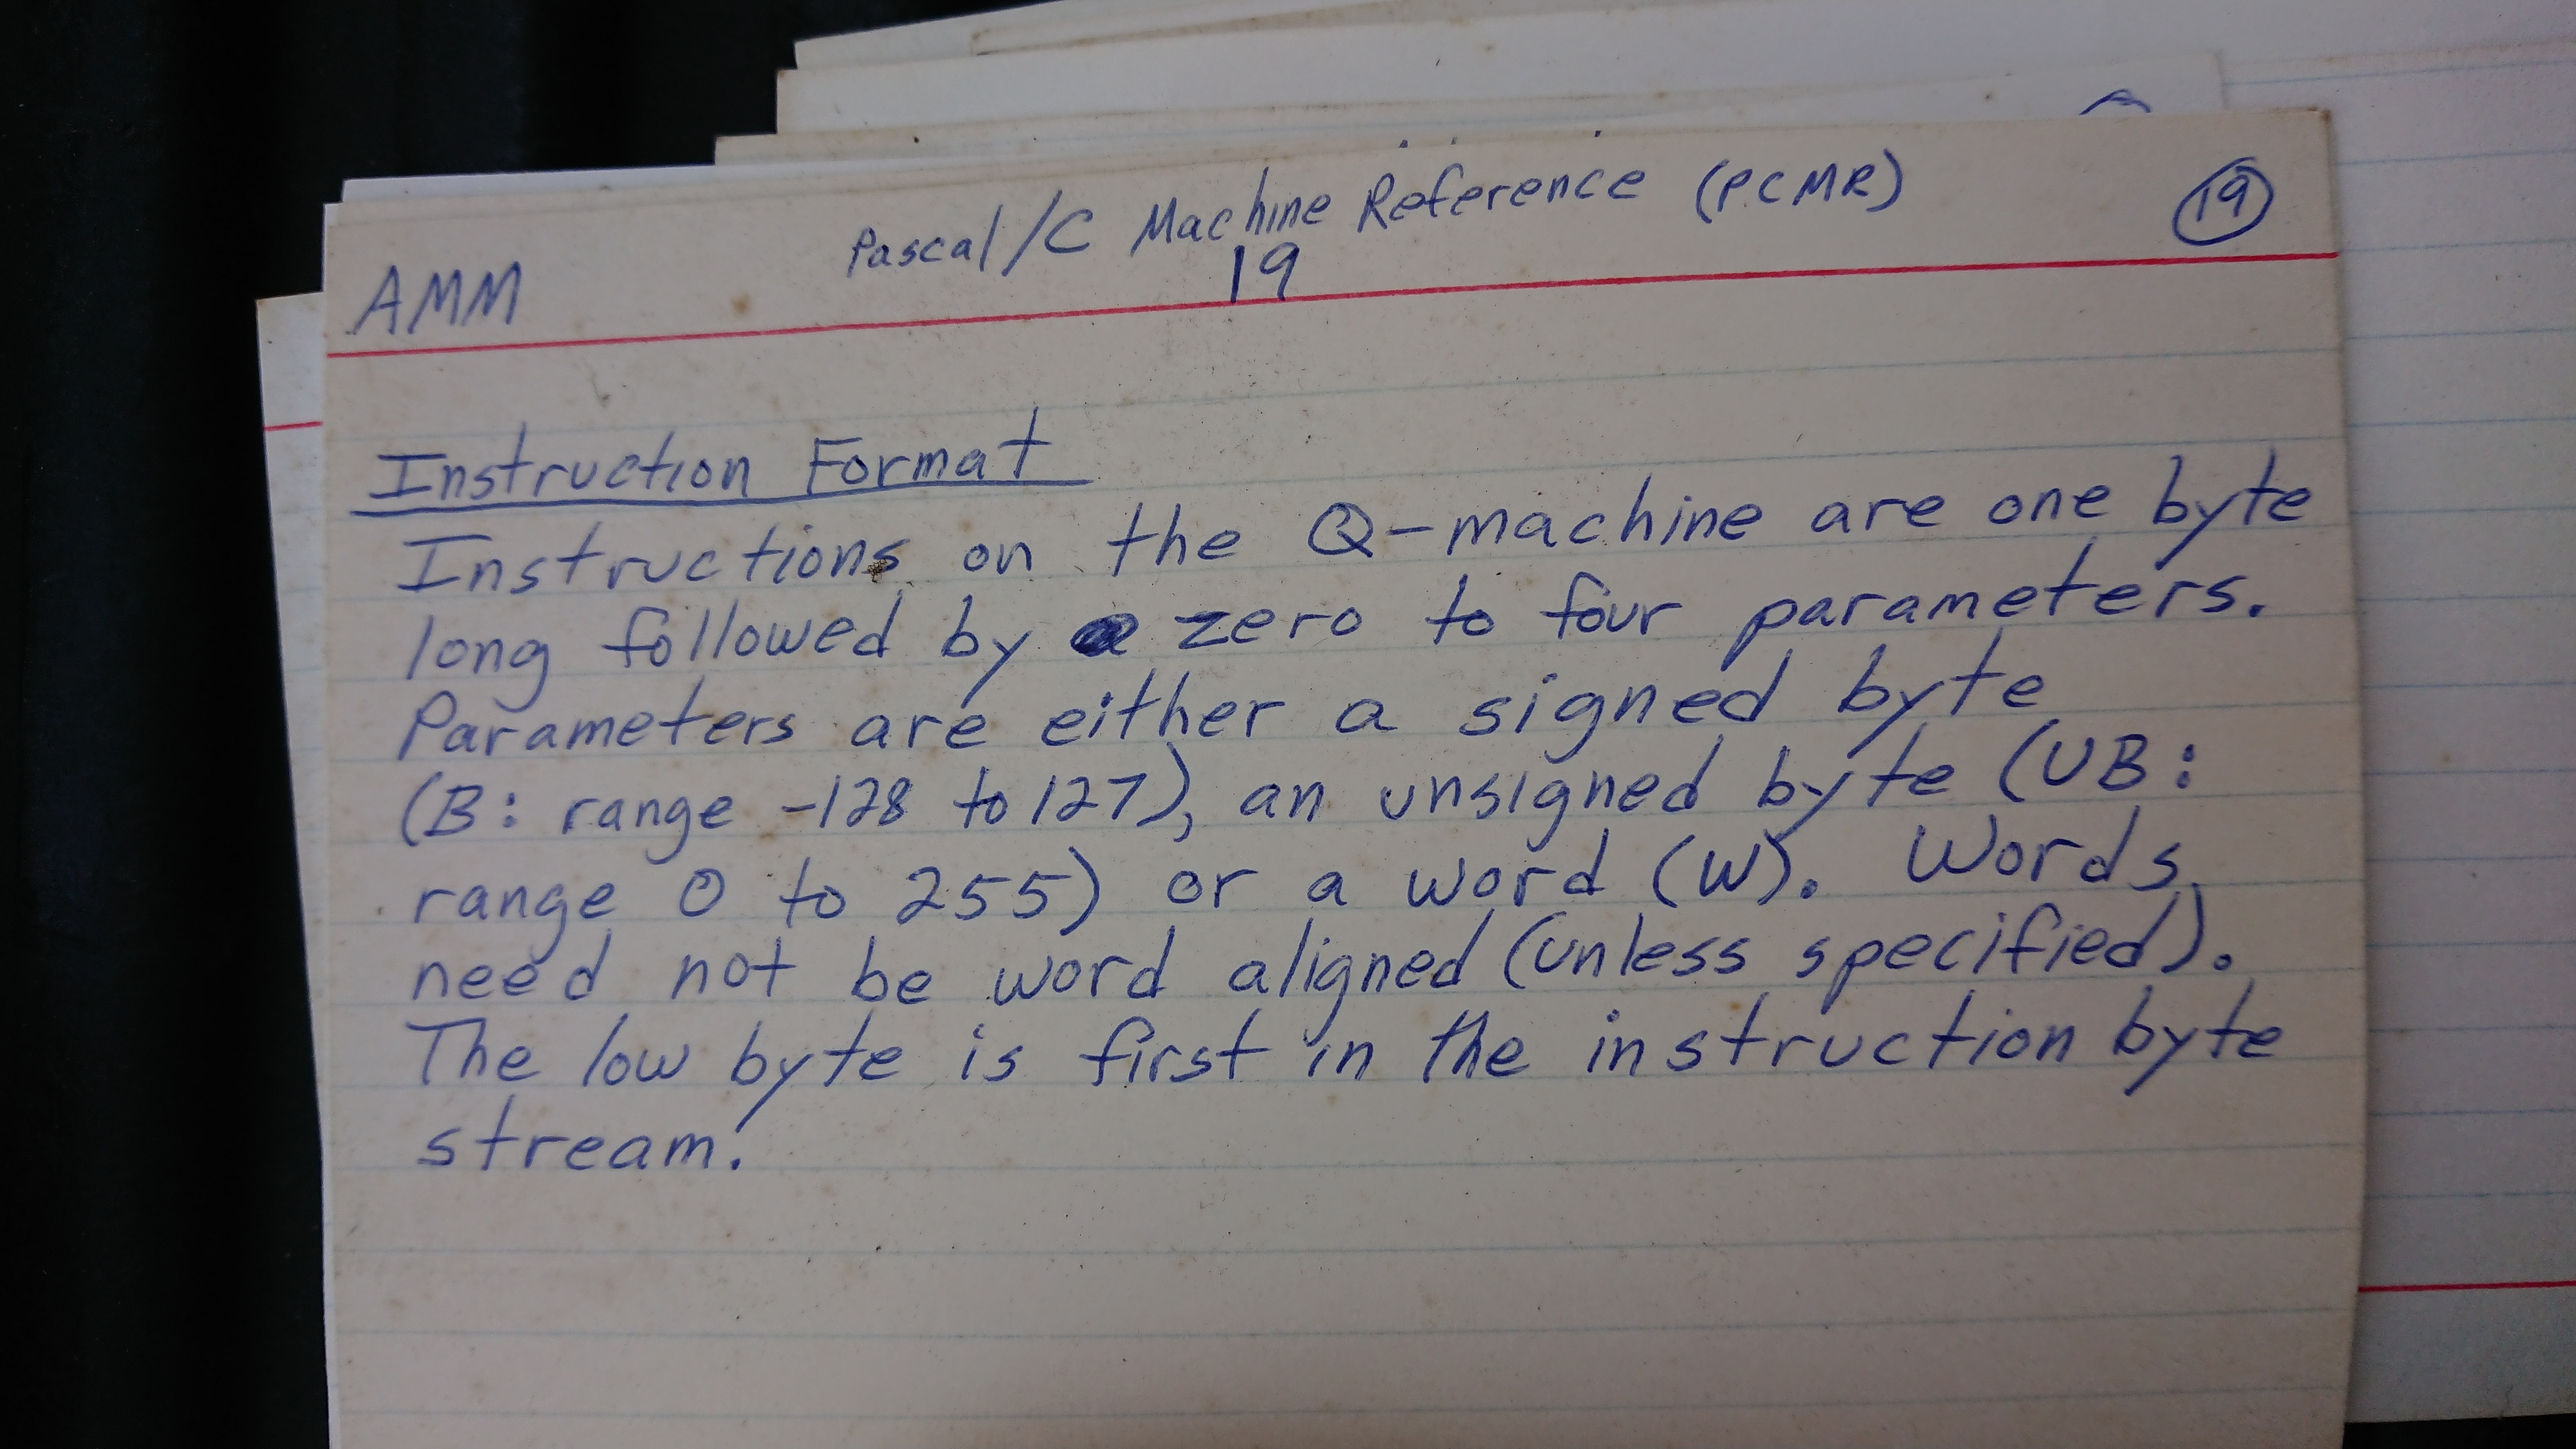 Pascal/C Machine Reference (PCMR)
19
19
AMM
Instruction Format
Instructions on the Q-machine are one byte
long followed by zero to four parameters.
Parameters are either a signed byte
(B: range -128 to 127), an unsigned byte (UB:
range 0 to 255) or a word (W). Words
need not be word aligned (unless specified).
The low byte is first in the instruction byte
stream.